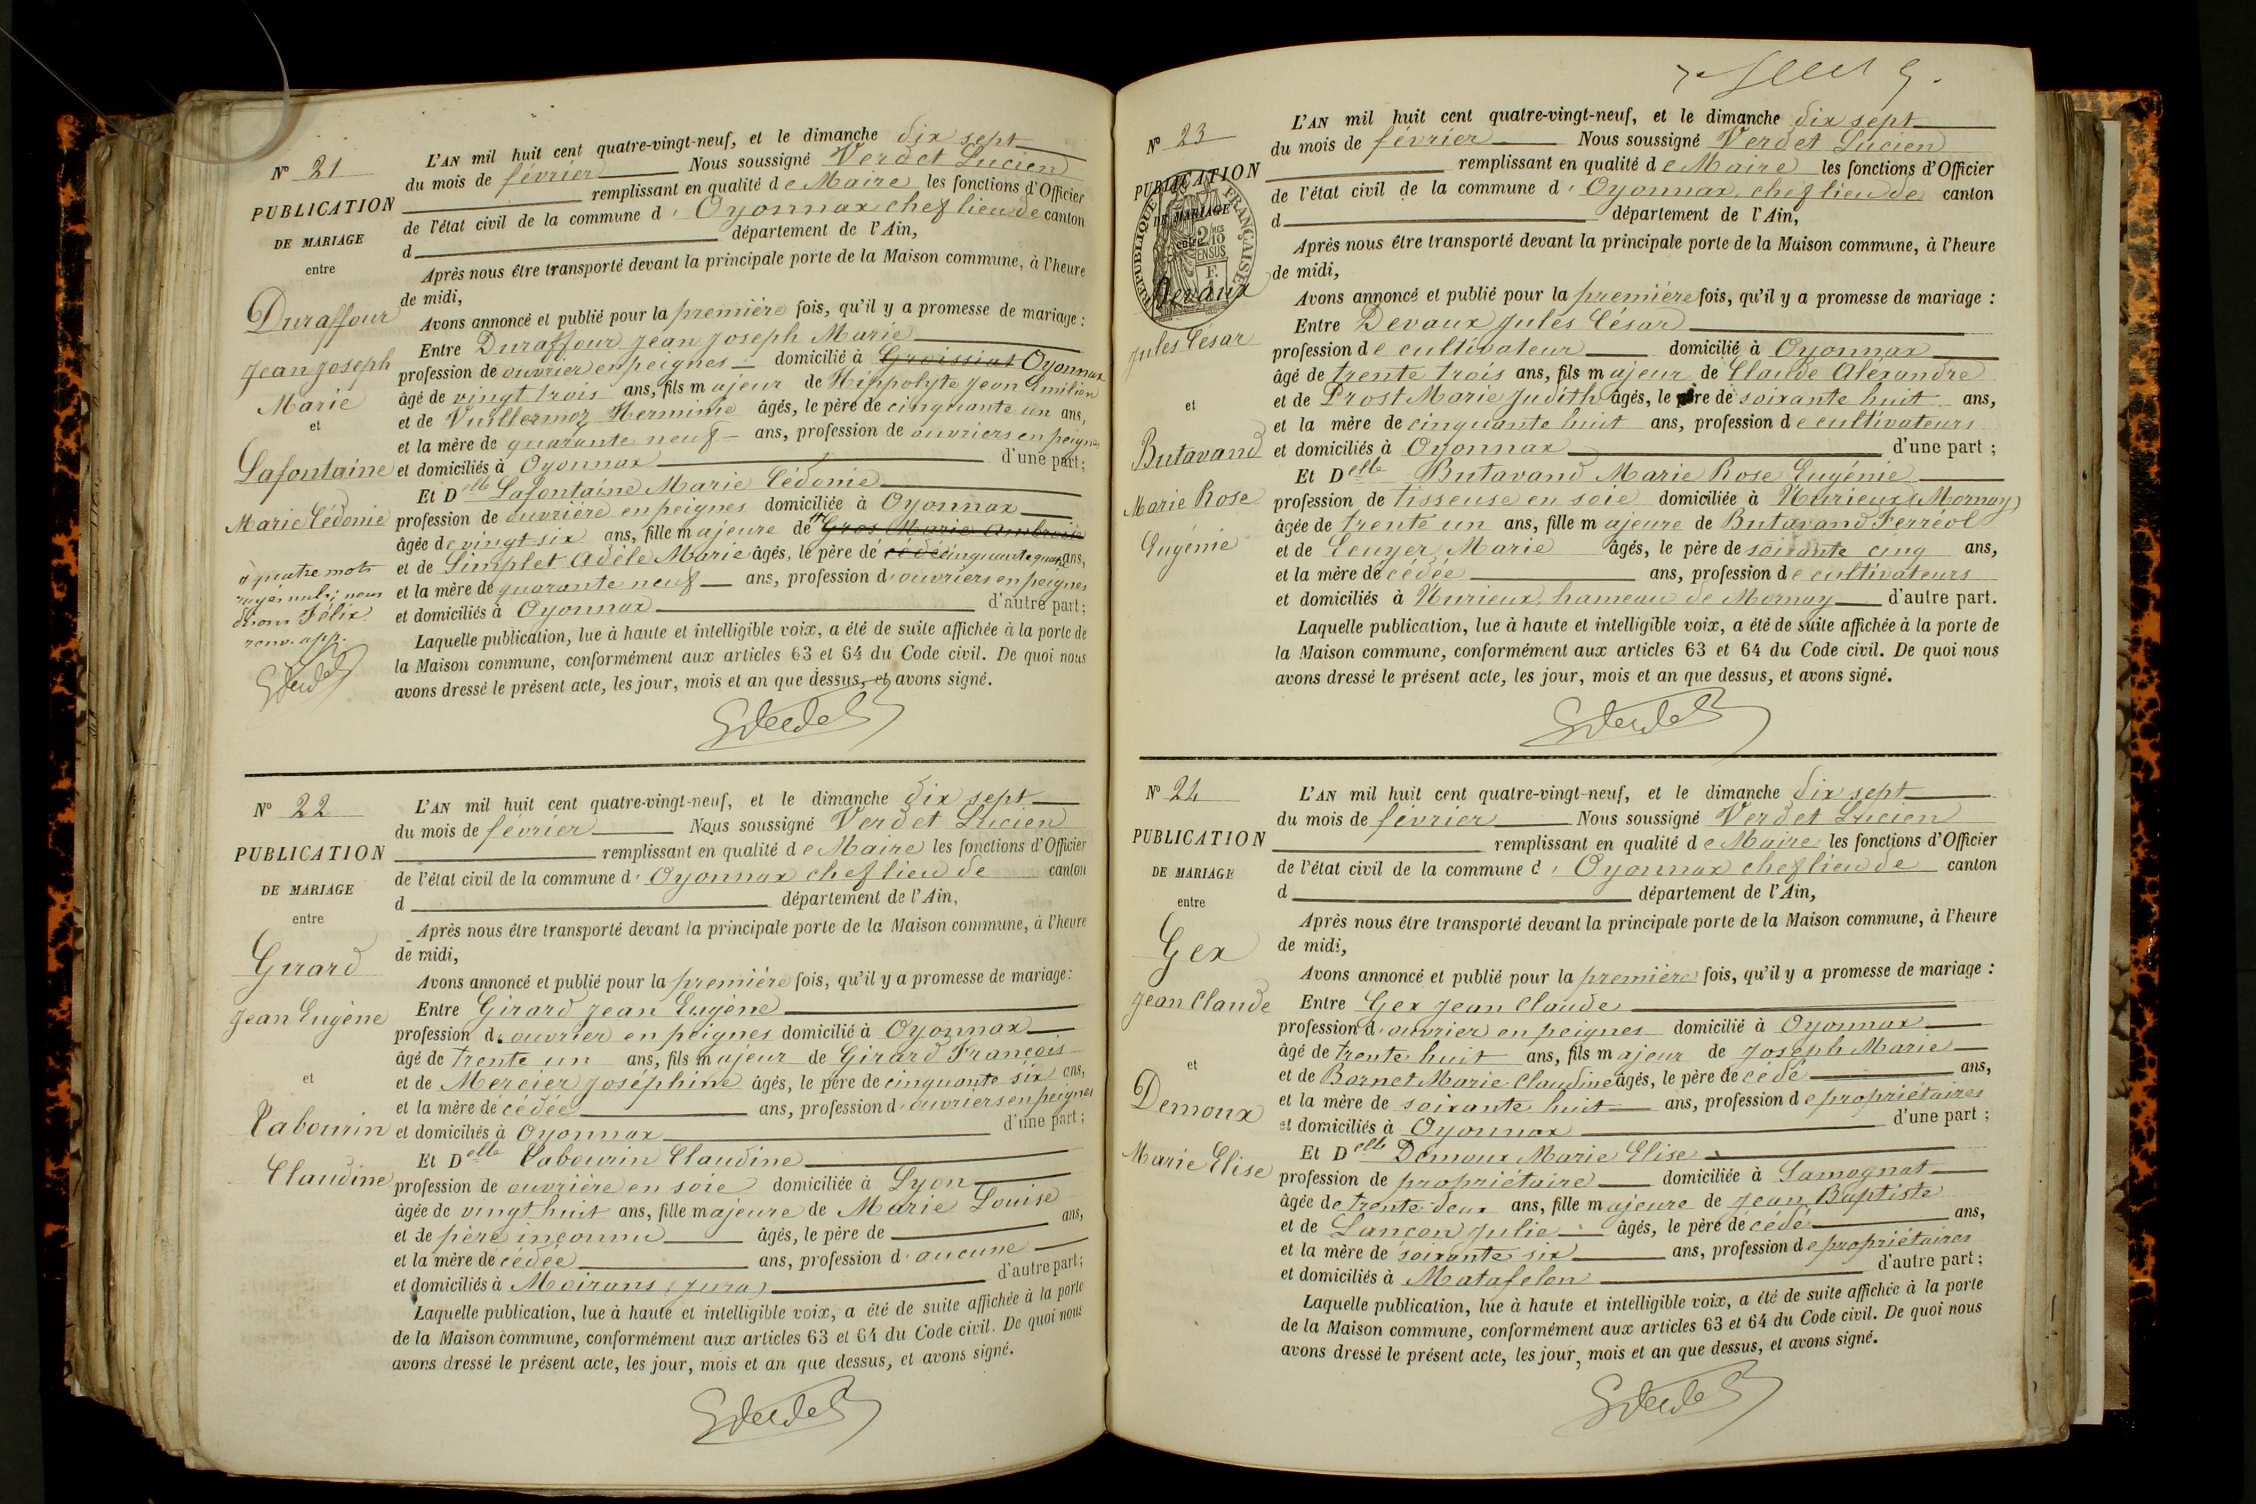 N° 21
PUBLICATION
DE MARIAGE
entre
Duraffour
Jean Joseph
Marie
et
Lafontaine
Marie Cédonie
quatre mots
rayés nuls; nous
disons Félix
L'AN mil huit cent quatre-vingt-neuf, et le dimanche dix sept
du mois de février Nous soussigné Verdet Lucien
remplissant en qualité de Maire les fonctions d'Officier
de l'état civil de la commune d'Oyonnax chef lieu de canton
d département de l'Ain,
Après nous être transporté devant la principale porte de la Maison commune, à l'heure
de midi,
Avons annoncé et publié pour la première fois, qu'il y a promesse de mariage :
Entre Duraffour Jean Joseph Marie
profession de ouvrier en peignes domicilié à Groissiat Oyonnax
âgé de vingt trois ans, fils majeur de Hippolyte Jean Emilien
et de Vuillermoz Herminie âgés, le père de cinquante un ans,
et la mère de quarante neuf ans, profession de ouvriers en peignes
et domiciliés à Oyonnax d'une part ;
Et Delle Lafontaine Marie Cédonie
profession de ouvrière en peignes domiciliée à Oyonnax
âgée de vingt six ans, fille majeure de Gros Marie Ambroise
et de Simplet Adèle Marie âgés, le père de cédé cinquante quatre ans,
et la mère de quarante neuf ans, profession d'ouvriers en peignes
et domiciliés à Oyonnax d'autre part ;
Laquelle publication, lue à haute et intelligible voix, a été de suite affichée à la porte de
la Maison commune, conformément aux articles 63 et 64 du Code civil. De quoi nous
avons dressé le présent acte, les jour, mois et an que dessus, et avons signé.
N° 22
PUBLICATION
DE MARIAGE
entre
Girard
Jean Eugène
et
Tabourin
Claudine
L'AN mil huit cent quatre-vingt-neuf, et le dimanche dix sept
du mois de février Nous soussigné Verdet Lucien
remplissant en qualité de Maire les fonctions d'Officier
de l'état civil de la commune d'Oyonnax chef lieu de canton
d département de l'Ain,
Après nous être transporté devant la principale porte de la Maison commune, à l'heure
de midi,
Avons annoncé et publié pour la première fois, qu'il y a promesse de mariage :
Entre Girard Jean Eugène
profession d'ouvrier en peignes domicilié à Oyonnax
âgé de trente un ans, fils majeur de Girard François
et de Mercier Joséphine âgés, le père de cinquante six ans,
et la mère décédée ans, profession d'ouvriers en peignes
et domiciliés à Oyonnax d'une part ;
Et Delle Tabourin Claudine
profession de ouvrière en soie domiciliée à Lyon
âgée de vingt huit ans, fille majeure de Marie Louise
et de père inconnu âgés, le père de ans,
et la mère décédée ans, profession d'aucune
et domiciliés à Moirans (Jura) d'autre part ;
Laquelle publication, lue à haute et intelligible voix, a été de suite affichée à la porte
de la Maison commune, conformément aux articles 63 et 64 du Code civil. De quoi nous
avons dressé le présent acte, les jour, mois et an que dessus, et avons signé.
N° 23
PUBLICATION
DE MARIAGE
RÉPUBLIQUE FRANÇAISE
2/10
EN SUS
Devaux
Jules César
et
Butavand
Marie Rose
Eugénie
L'AN mil huit cent quatre-vingt-neuf, et le dimanche dix sept
du mois de février Nous soussigné Verdet Lucien
remplissant en qualité de Maire les fonctions d'Officier
de l'état civil de la commune d'Oyonnax chef lieu de canton
d département de l'Ain,
Après nous être transporté devant la principale porte de la Maison commune, à l'heure
de midi,
Avons annoncé et publié pour la première fois, qu'il y a promesse de mariage :
Entre Devaux Jules César
profession de cultivateur domicilié à Oyonnax
âgé de trente trois ans, fils majeur de Claude Alexandre
et de Prost Marie Judith âgés, le père de soixante huit ans,
et la mère de cinquante huit ans, profession de cultivateurs
et domiciliés à Oyonnax d'une part ;
Et Delle Butavand Marie Rose Eugénie
profession de tisseuse en soie domiciliée à Nurieux (Mornay)
âgée de trente un ans, fille majeure de Butavand Ferréol
et de Leuyer Marie âgés, le père de soixante cinq ans,
et la mère décédée ans, profession de cultivateurs
et domiciliés à Nurieux, hameau de Mornay d'autre part.
Laquelle publication, lue à haute et intelligible voix, a été de suite affichée à la porte de
la Maison commune, conformément aux articles 63 et 64 du Code civil. De quoi nous
avons dressé le présent acte, les jour, mois et an que dessus, et avons signé.
N° 24
PUBLICATION
DE MARIAGE
entre
Gex
Jean Claude
et
Demoux
Marie Elise
L'AN mil huit cent quatre-vingt-neuf, et le dimanche dix sept
du mois de février Nous soussigné Verdet Lucien
remplissant en qualité de Maire les fonctions d'Officier
de l'état civil de la commune d'Oyonnax chef lieu de canton
d département de l'Ain,
Après nous être transporté devant la principale porte de la Maison commune, à l'heure
de midi,
Avons annoncé et publié pour la première fois, qu'il y a promesse de mariage :
Entre Gex Jean Claude
profession d'ouvrier en peignes domicilié à Oyonnax
âgé de trente huit ans, fils majeur de Joseph Marie
et de Bornet Marie Claudine âgés, le père décédé ans,
et la mère de soixante huit ans, profession de propriétaires
et domiciliés à Oyonnax d'une part ;
Et Delle Demoux Marie Elise
profession de propriétaire domiciliée à Samognat
âgée de trente deux ans, fille majeure de Jean Baptiste
et de Lançon Julie âgés, le père décédé ans,
et la mère de soixante six ans, profession de propriétaires
et domiciliés à Matafelon d'autre part ;
Laquelle publication, lue à haute et intelligible voix, a été de suite affichée à la porte
de la Maison commune, conformément aux articles 63 et 64 du Code civil. De quoi nous
avons dressé le présent acte, les jour, mois et an que dessus, et avons signé.